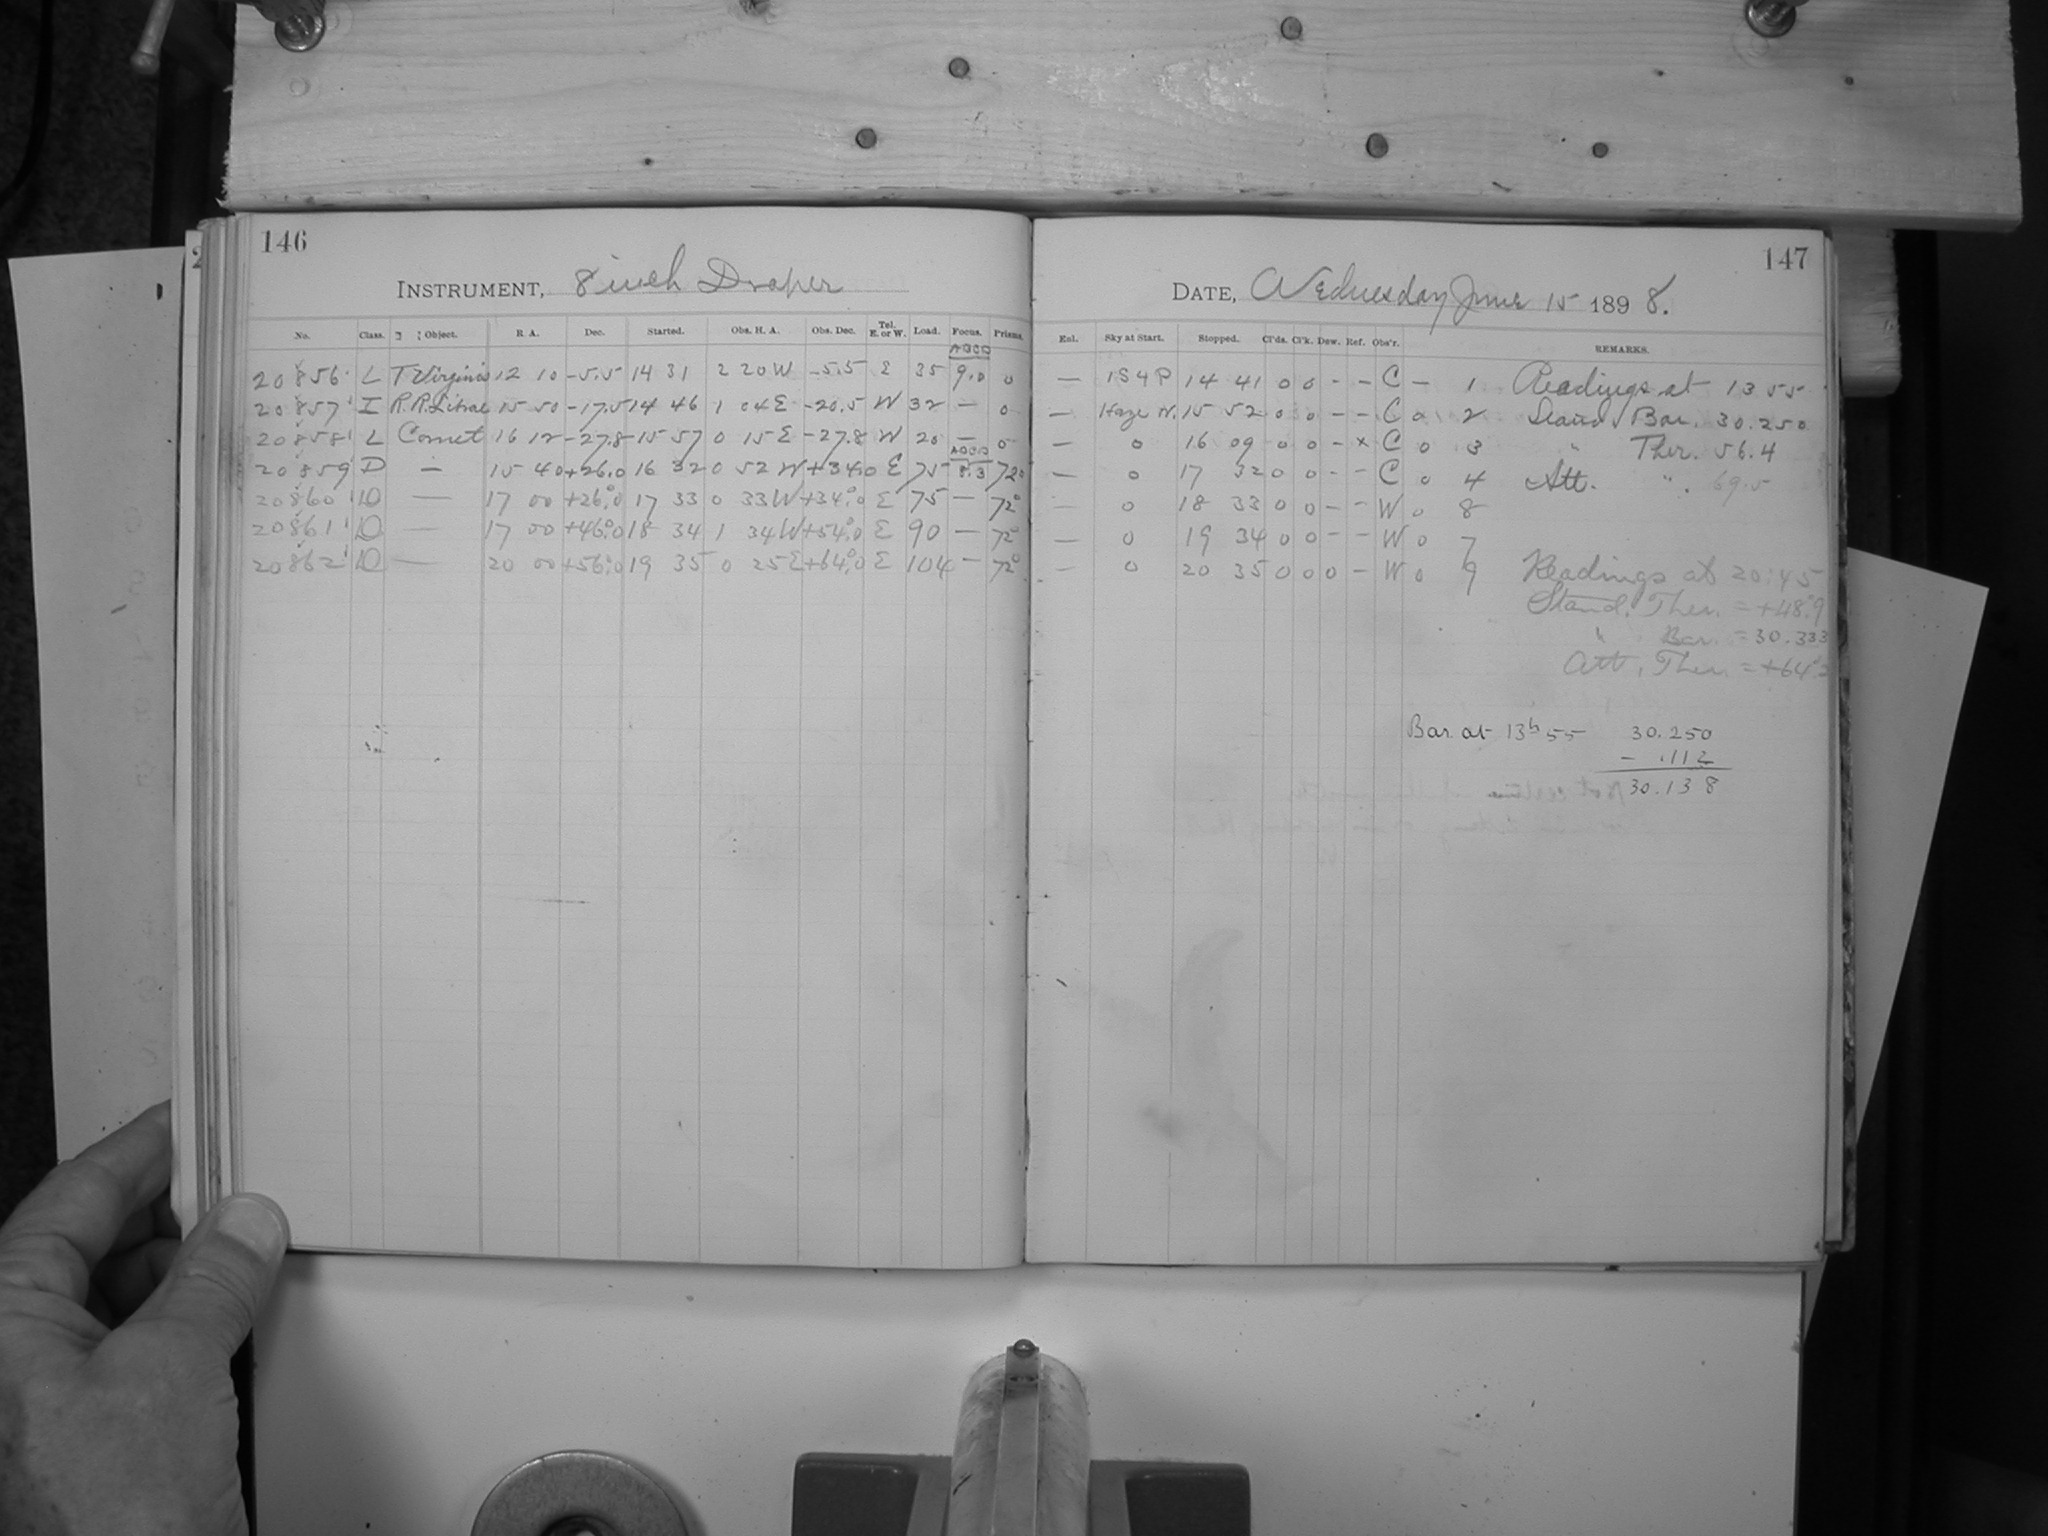 146
INSTRUMENT, 8 inch Draper
No. Class. Object. R. A. Dec. Started. Obs. H. A. Obs. Dec. Tel. E. or W. Load. Focus. Prisms.
ABCD
20856 L T Virginis 12 10 -5.5 14 31 2 20 W -5.5 E 35 9.0 0
20857 I R.R. Librae 15 50 -17.5 14 46 1 04 E -20.5 W 32 — 0
20858 L Comet 16 12 -27.8 15 57 0 15 E -27.8 W 20 — 0
ABCD
20859 D — 15 40 +26.0 16 32 0 52 W +34.0 E 75 8.3 72°
20860 D — 17 00 +26°.0 17 33 0 33 W +34°.0 E 75 — 72°
20861 D — 17 00 +46°.0 18 34 1 34 W +54°.0 E 90 — 72°
20862 D — 20 00 +56°.0 19 35 0 25 E +64°.0 E 104 — 72°
147
DATE, Wednesday June 15 1898.
Enl. Sky at Start. Stopped. Cl'ds. Cl'k. Dew. Ref. Obs'r. REMARKS.
— 1S4P 14 41 0 0 - - C — 1 Readings at 13 55
— Haze N. 15 52 0 0 - - C 0 2 Stand Bar. 30.250
— 0 16 09 0 0 - x C 0 3 " Ther. 56.4
— 0 17 32 0 0 - - C 0 4 Att. " 69.5
— 0 18 33 0 0 - - W 0 8
— 0 19 34 0 0 - - W 0 7
— 0 20 35 0 0 0 - W 0 9 Readings at 20:45
Stand. Ther. = +48°.9
" Bar. = 30.333
Att. Ther. = +64°
Bar. at 13h 55 30.250
- .112
30.138